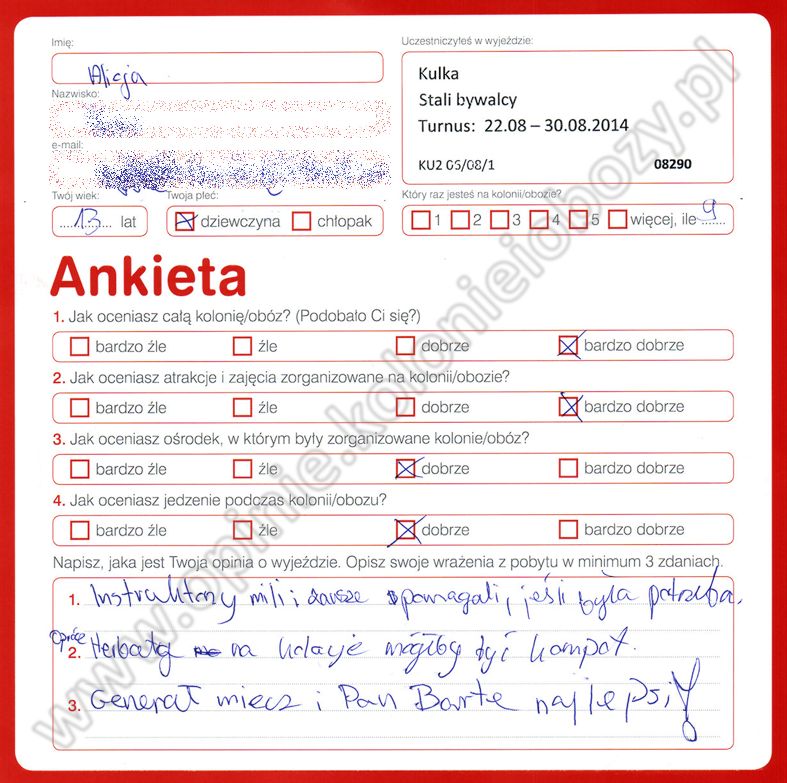 Imię:
Alicja
Nazwisko:
e-mail:
Twój wiek:
13 lat
Twoja płeć:
dziewczyna chłopak
Uczestniczyłeś w wyjeździe:
Kulka
Stali bywalcy
Turnus: 22.08 – 30.08.2014
KU2 05/08/1 08290
Który raz jesteś na kolonii/obozie?
1 2 3 4 5 więcej, ile 9
Ankieta
1. Jak oceniasz całą kolonię/obóz? (Podobało Ci się?)
bardzo źle źle dobrze bardzo dobrze
2. Jak oceniasz atrakcje i zajęcia zorganizowane na kolonii/obozie?
bardzo źle źle dobrze bardzo dobrze
3. Jak oceniasz ośrodek, w którym były zorganizowane kolonie/obóz?
bardzo źle źle dobrze bardzo dobrze
4. Jak oceniasz jedzenie podczas kolonii/obozu?
bardzo źle źle dobrze bardzo dobrze
Napisz, jaka jest Twoja opinia o wyjeździe. Opisz swoje wrażenia z pobytu w minimum 3 zdaniach.
1. Instruktorzy mili i zawsze pomagali, jeśli była potrzeba.
2. Oprócz Herbaty na kolacje mógłby być kompot.
3. Generał miecz i Pan Bartek najlepsi!
www.opinie.kolonieiobozy.pl